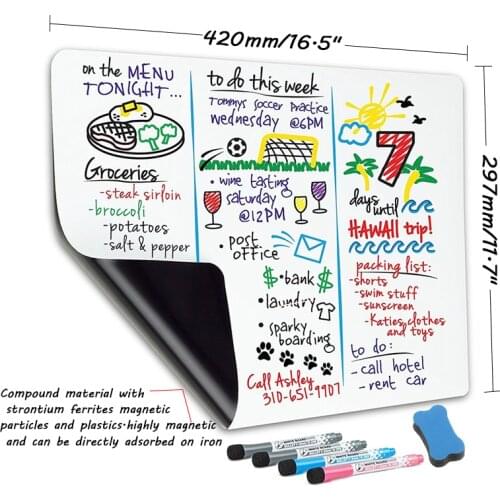 420mm/16.5"
297mm/11.7"
on the MENU
TONIGHT...
Groceries
- steak sirloin
- broccoli
- potatoes
- salt & pepper
to do this week
Tommys Soccer Practice
wednesday @6PM
• wine tasting
saturday
@12PM
• post
office
$ • bank $
• laundry
• sparky
boarding
Call Ashley
310-651-9907
7
days until
HAWAII trip!
packing list:
- shorts
- swim stuff
- sunscreen
- Katies clothes
and toys
to do:
- call hotel
- rent car
Compound material with
strontium ferrites magnetic
particles and plastics·highly magnetic
and can be directly adsorbed on iron